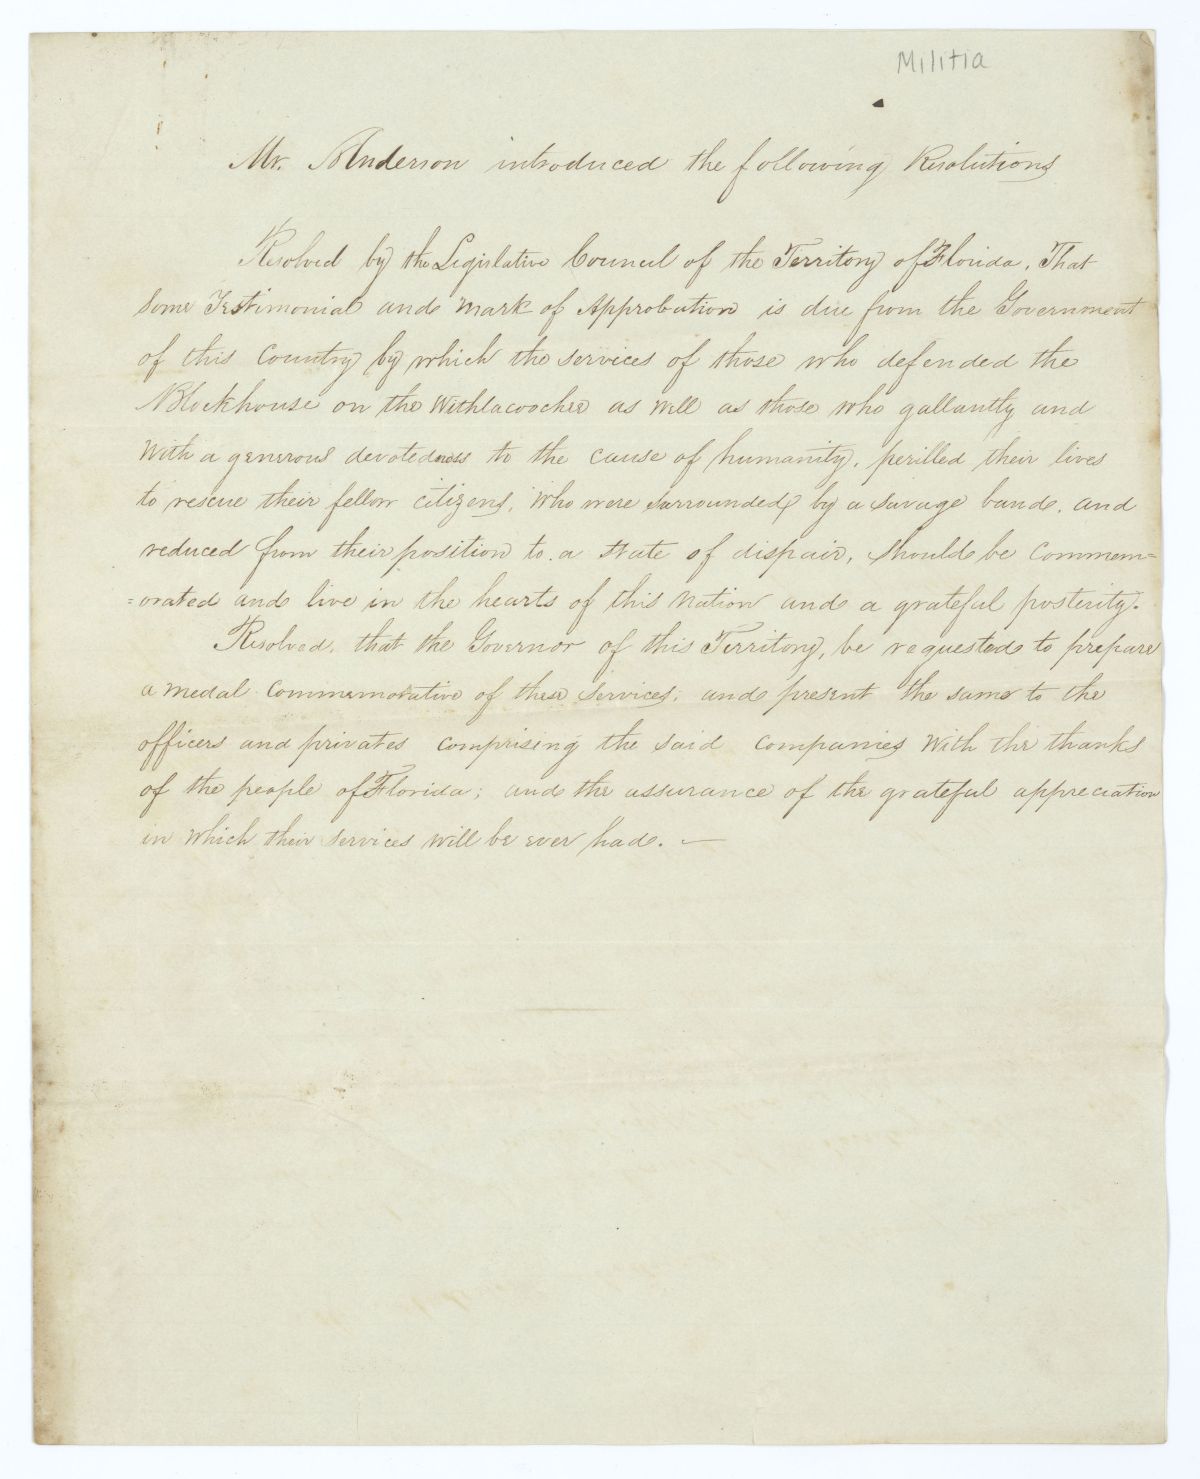 Militia
Mr. Anderson introduced the following Resolutions
Resolved by the Legislative Council of the Territory of Florida, That
some Testimonial and mark of Approbation is due from the Government
of this Country by which the services of those who defended the
Blockhouse on the Withlacoochee as well as those who gallantly and
with a generous devotedness to the cause of humanity, perilled their lives
to rescue their fellow citizens, who were surrounded by a savage band, and
reduced from their position to a state of dispair, should be commem=
=orated and live in the hearts of this nation and a grateful posterity.
Resolved, that the Governor of this Territory, be requested to prepare
a medal commemorative of these services; and present the same to the
officers and privates comprising the said companies with the thanks
of the people of Florida; and the assurance of the grateful appreciation
in which their services will be ever had. —